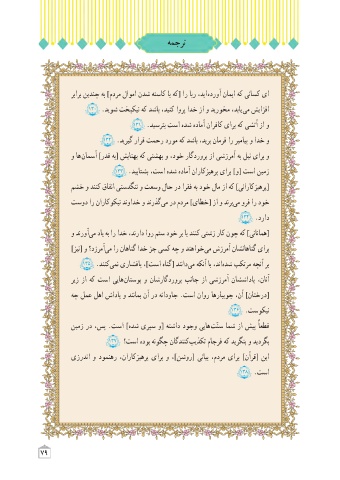 ترجمه
ای کسانی که ایمان آورده‌اید، ربا را [که با کاسته شدن اموال مردم] به چندین برابر
افزایش می‌یابد، مخورید و از خدا پروا کنید، باشد که نیکبخت شوید. ۱۳۰
و از آتشی که برای کافران آماده شده است بترسید. ۱۳۱
و خدا و پیامبر را فرمان برید، باشد که مورد رحمت قرار گیرید. ۱۳۲
و برای نیل به آمرزشی از پروردگار خود، و بهشتی که پهنایش [به قدر] آسمان‌ها و
زمین است [و] برای پرهیزکاران آماده شده است، بشتابید. ۱۳۳
[پرهیزکارانی] که از مال خود به فقرا در حال وسعت و تنگدستی انفاق کنند و خشم
خود را فرو می‌برند و از [خطای] مردم در می‌گذرند و خداوند نیکوکاران را دوست
دارد. ۱۳۴
[همانانی] که چون کار زشتی کنند یا بر خود ستم روا دارند، خدا را به یاد می‌آورند و
برای گناهانشان آمرزش می‌خواهند و چه کسی جز خدا گناهان را می‌آمرزد؟ و [نیز]
بر آنچه مرتکب شده‌اند، با آنکه می‌دانند [گناه است]، پافشاری نمی‌کنند. ۱۳۵
آنان، پاداششان آمرزشی از جانب پروردگارشان و بوستان‌هایی است که از زیر
[درختان] آن، جویبارها روان است. جاودانه در آن بمانند و پاداش اهل عمل چه
نیکوست. ۱۳۶
قطعاً پیش از شما سنّت‌هایی وجود داشته [و سپری شده] است. پس، در زمین
بگردید و بنگرید که فرجام تکذیب‌کنندگان چگونه بوده است؟ ۱۳۷
این [قرآن] برای مردم، بیانی [روشن]، و برای پرهیزکاران، رهنمود و اندرزی
است. ۱۳۸
۷۹